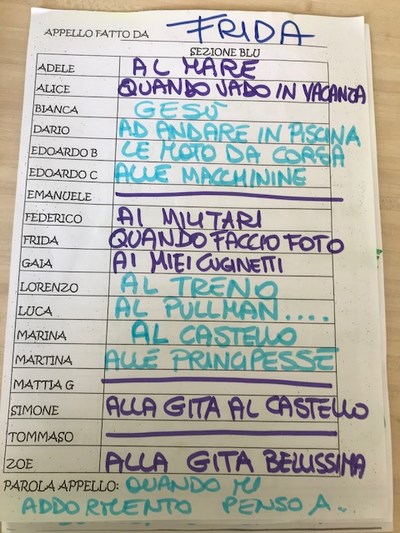 APPELLO FATTO DA FRIDA
SEZIONE BLU
ADELE AL MARE
ALICE QUANDO VADO IN VACANZA
BIANCA GESÙ
DARIO AD ANDARE IN PISCINA
EDOARDO B LE MOTO DA CORSA
EDOARDO C ALLE MACCHININE
EMANUELE
FEDERICO AI MILITARI
FRIDA QUANDO FACCIO FOTO
GAIA AI MIEI CUGINETTI
LORENZO AL TRENO
LUCA AL PULLMAN....
MARINA AL CASTELLO
MARTINA ALLE PRINCIPESSE
MATTIA G
SIMONE ALLA GITA AL CASTELLO
TOMMASO
ZOE ALLA GITA BELLISSIMA
PAROLA APPELLO: QUANDO MI
ADDORMENTO PENSO A..